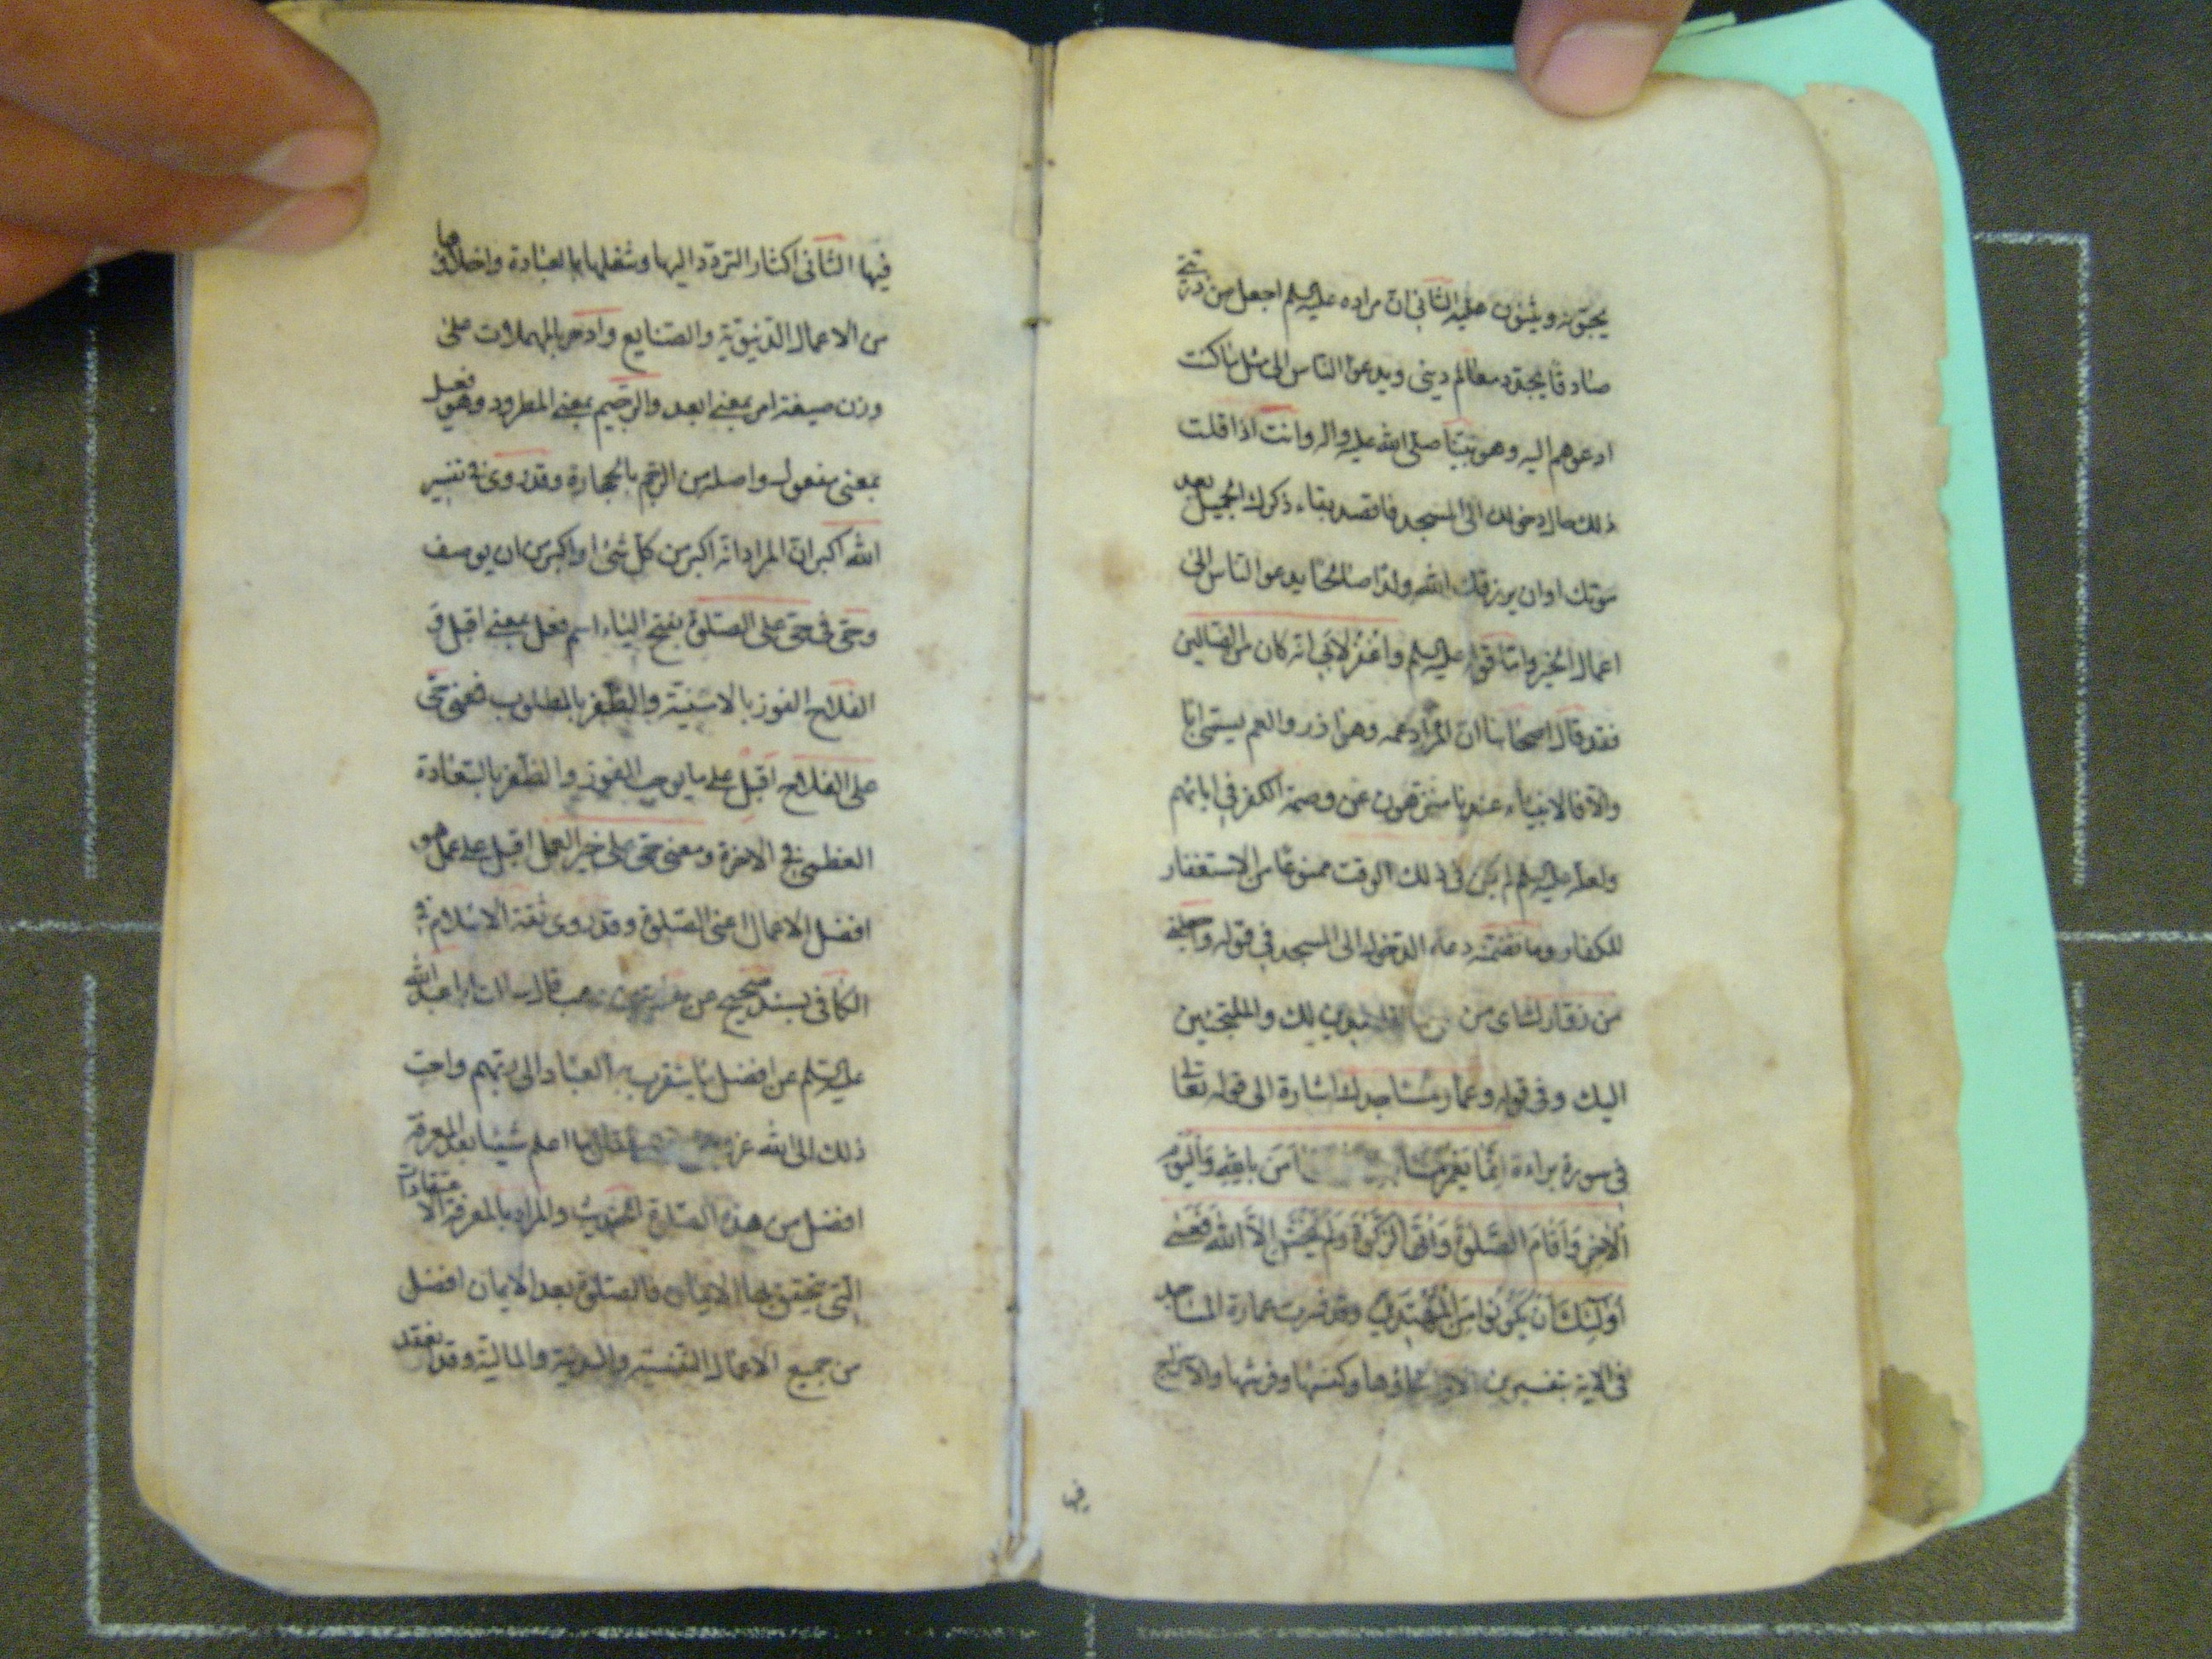 يحبّونه ويثنون عليه الثّاني انّ مراده عليه السلم اجعل من ذرّيّتي
صادقًا يجدّد معالم ديني ويدعو النّاس الى مثل ما كنت
ادعوهم اليه وهو نبيّنا صلّى الله عليه واله وانت اذا قلت
ذلك حال دخولك الى المسجد فاقصد بقاء ذكرك الجميل بعد
موتك او ان يرزقك الله ولدًا صالحًا يدعو النّاس الى
اعمال الخير وامّا قوله عليه السلم واغفر لابي انّه كان من الضّالين
فقد قال اصحابنا ان المراد عمه وهو اذر والعم يسمّى ابا
والّا فالانبياء عندنا منزّهون عن وصمة الكفر في ابائهم
ولعلّه عليه السلم لم يكن في ذلك الوقت ممنوعًا من الاستغفار
للكفار وما تضمّنه دعاء الدّخول الى المسجد في قوله واجعلني
من زوّارك اي من لك والملتجئين
اليك وفي قوله وعمّار مساجدك اشارة الى قوله تعالى
في سورة براءة انّما يعمر امن بالله واليوم
الاخر واقام الصّلوة واتى الزّكوة ولم يخش الّا الله فعسى
اولئك ان يكونوا من المهتدين وقد فسرت عمارة المساجد
في الاية بتفسيرين الاول وكنسها وفرشها والاسراج
فيها
فيها الثّاني اكثار التردّد اليها وشغلها بالعبادة واخلاؤها
من الاعمال الدّنيويّة والصّنايع وادحر بالمهملات على
وزن صيغة امر بمعنى ابعد والرّجيم بمعنى المطرود وهو فعيل
بمعنى مفعول واصله من الرّجم بالحجارة وقد روى في تفسير
الله اكبر انّ المراد انّه اكبر من كلّ شئ او اكبر من ان يوصف
وحيّ في حيّ على الصّلوة بفتح الياء اسم فعل بمعنى اقبل و
الفلاح الفوز بالامنيّة والظّفر بالمطلوب فمعنى حيّ
على الفلاح اقبل على ما يوجب الفوز والظّفر بالسّعادة
العظمى في الاخرة ومعنى حيّ على خير العمل اقبل على عمل هو
افضل الاعمال اعنى الصّلوة وقد روى ثقة الاسلام في
الكافي بسند صحيح عن بن وهب قال سالت ابا عبد الله
عليه السّلم عن افضل ما يتقرب به العباد الى ربّهم واحبّ
ذلك الى الله عزّ فقال ما اعلم شيئا بعد المعرفة
افضل من هذه الصّلوة الحديث والمراد بالمعرفة الاعتقادات
الّتي يتحقق بها الايمان فالصّلوة بعد الايمان افضل
من جميع الاعمال النّفسيّة والبدنيّة والماليّة وقد نعقد